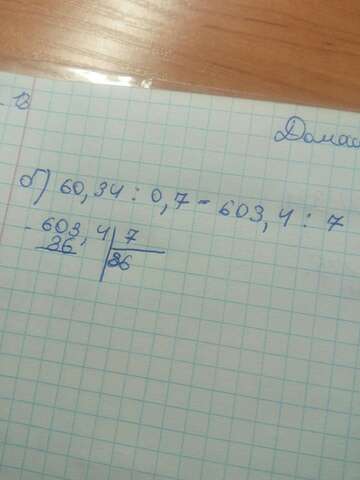 Дома
б) 60,34 : 0,7 = 603,4 : 7
- 603,4 | 7
86 | 86